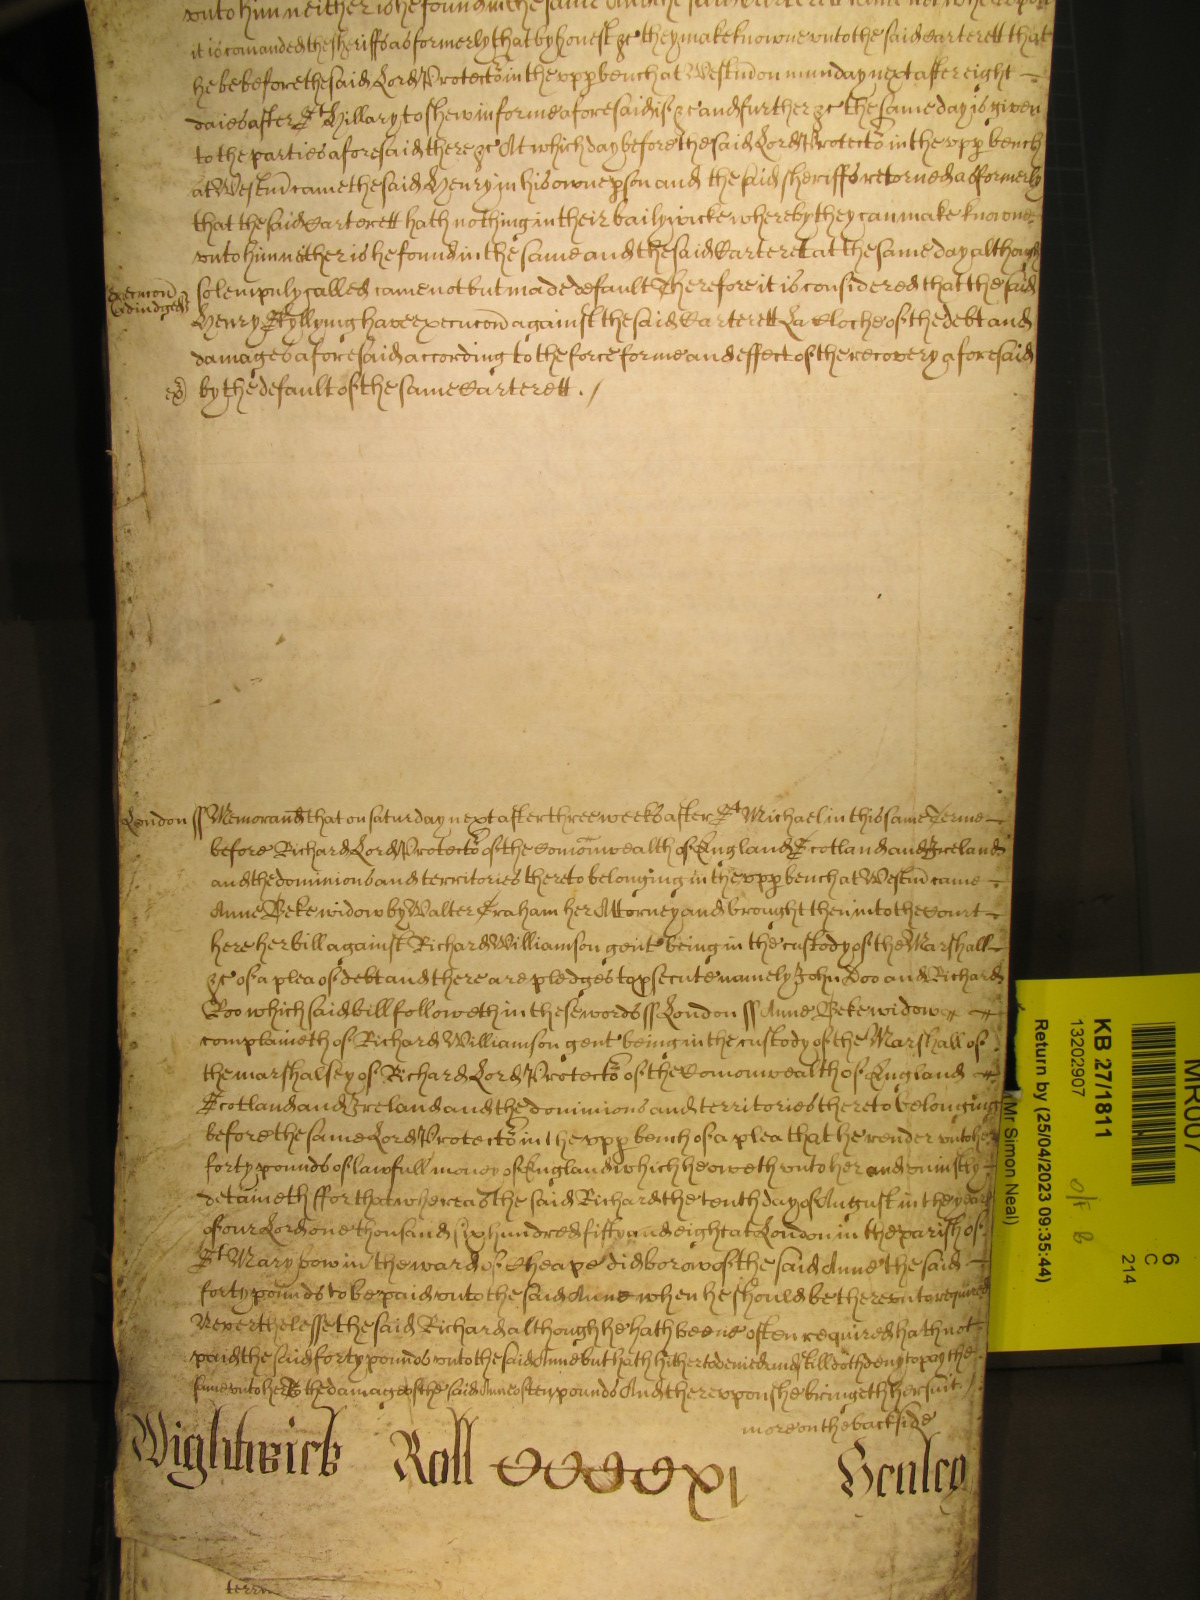 vnto him neither is he found in the same And the said Carterett came not wherevpon
it is comanded the sheriffs as formerly that by honest &c they make knowne vnto the said Carterett that
he be before the said Lord Protector in the vpp bench at Westm on munday next after eight
daies after St Hillary to shew in forme aforesaid if &c and further &c the same day is given
to the parties aforesaid there &c At which day before the said Lord Protector in the vpp bench
at Westm came the said Henry in his owne pson and the said sheriffs retorned as formerly
that the said Carterett hath nothing in their bailywicke whereby they can make knowne
vnto him neither is he found in the same and the said Carteret at the same day although
Execucon
Adiudged
solempnly called came not but made default Therefore it is considered that the said
Henry Styllying have execucon against the said Carterett La Cloche of the debt and
damages aforesaid according to the force forme and effect of the recovery aforesaid
by the default of the same Carterett . /
London ss Memorand that on saturday next after three weeks after St Michael in this same Terme
before Richard Lord Protector of the Comonwealth of England Scotland and Ireland
and the dominions and territories thereto belonging in the vpp bench at Westm came
Anne Beke widow by Walter Graham her Attorney and brought then into the Court
here her bill against Richard Williamson gent being in the custody of the Marshall
&c of a plea of debt and there are pledges to psecute namely John Doo and Richard
Roo which said bill followeth in these words ss London ss Anne Beke widow
complaineth of Richard Williamson gent being in the custody of the Marshall of
the marshalsey of Richard Lord Protector of the Comonwealth of England
Scotland and Ireland and the dominions and territories thereto belonging
before the same Lord Protector in the vpp bench of a plea that he render vnto her
forty pounds of lawfull money of England which he oweth vnto her and vniustly
detaineth ffor that whereas the said Richard the tenth day of August in the yeare
of our Lord one thousand six hundred fifty and eight at London in the parish of
St Mary bow in the ward of Cheape did borow of the said Anne the said
forty pounds to be paid vnto the said Anne when he should be therevnto required
Neverthelesse the said Richard although he hath beene often required hath not
paid the said forty pounds vnto the said Anne but hath hitherto denied and still doth deny to pay the
same vnto her To the damage of the said Anne of ten pounds And therevpon she bringeth her suit
more on the backside
Wightwick Roll CCCCXI Henley
MR007
6
C
214
KB 27/1811
13202907
Return by (25/04/2023 09:35:44)
Mr Simon Neal)